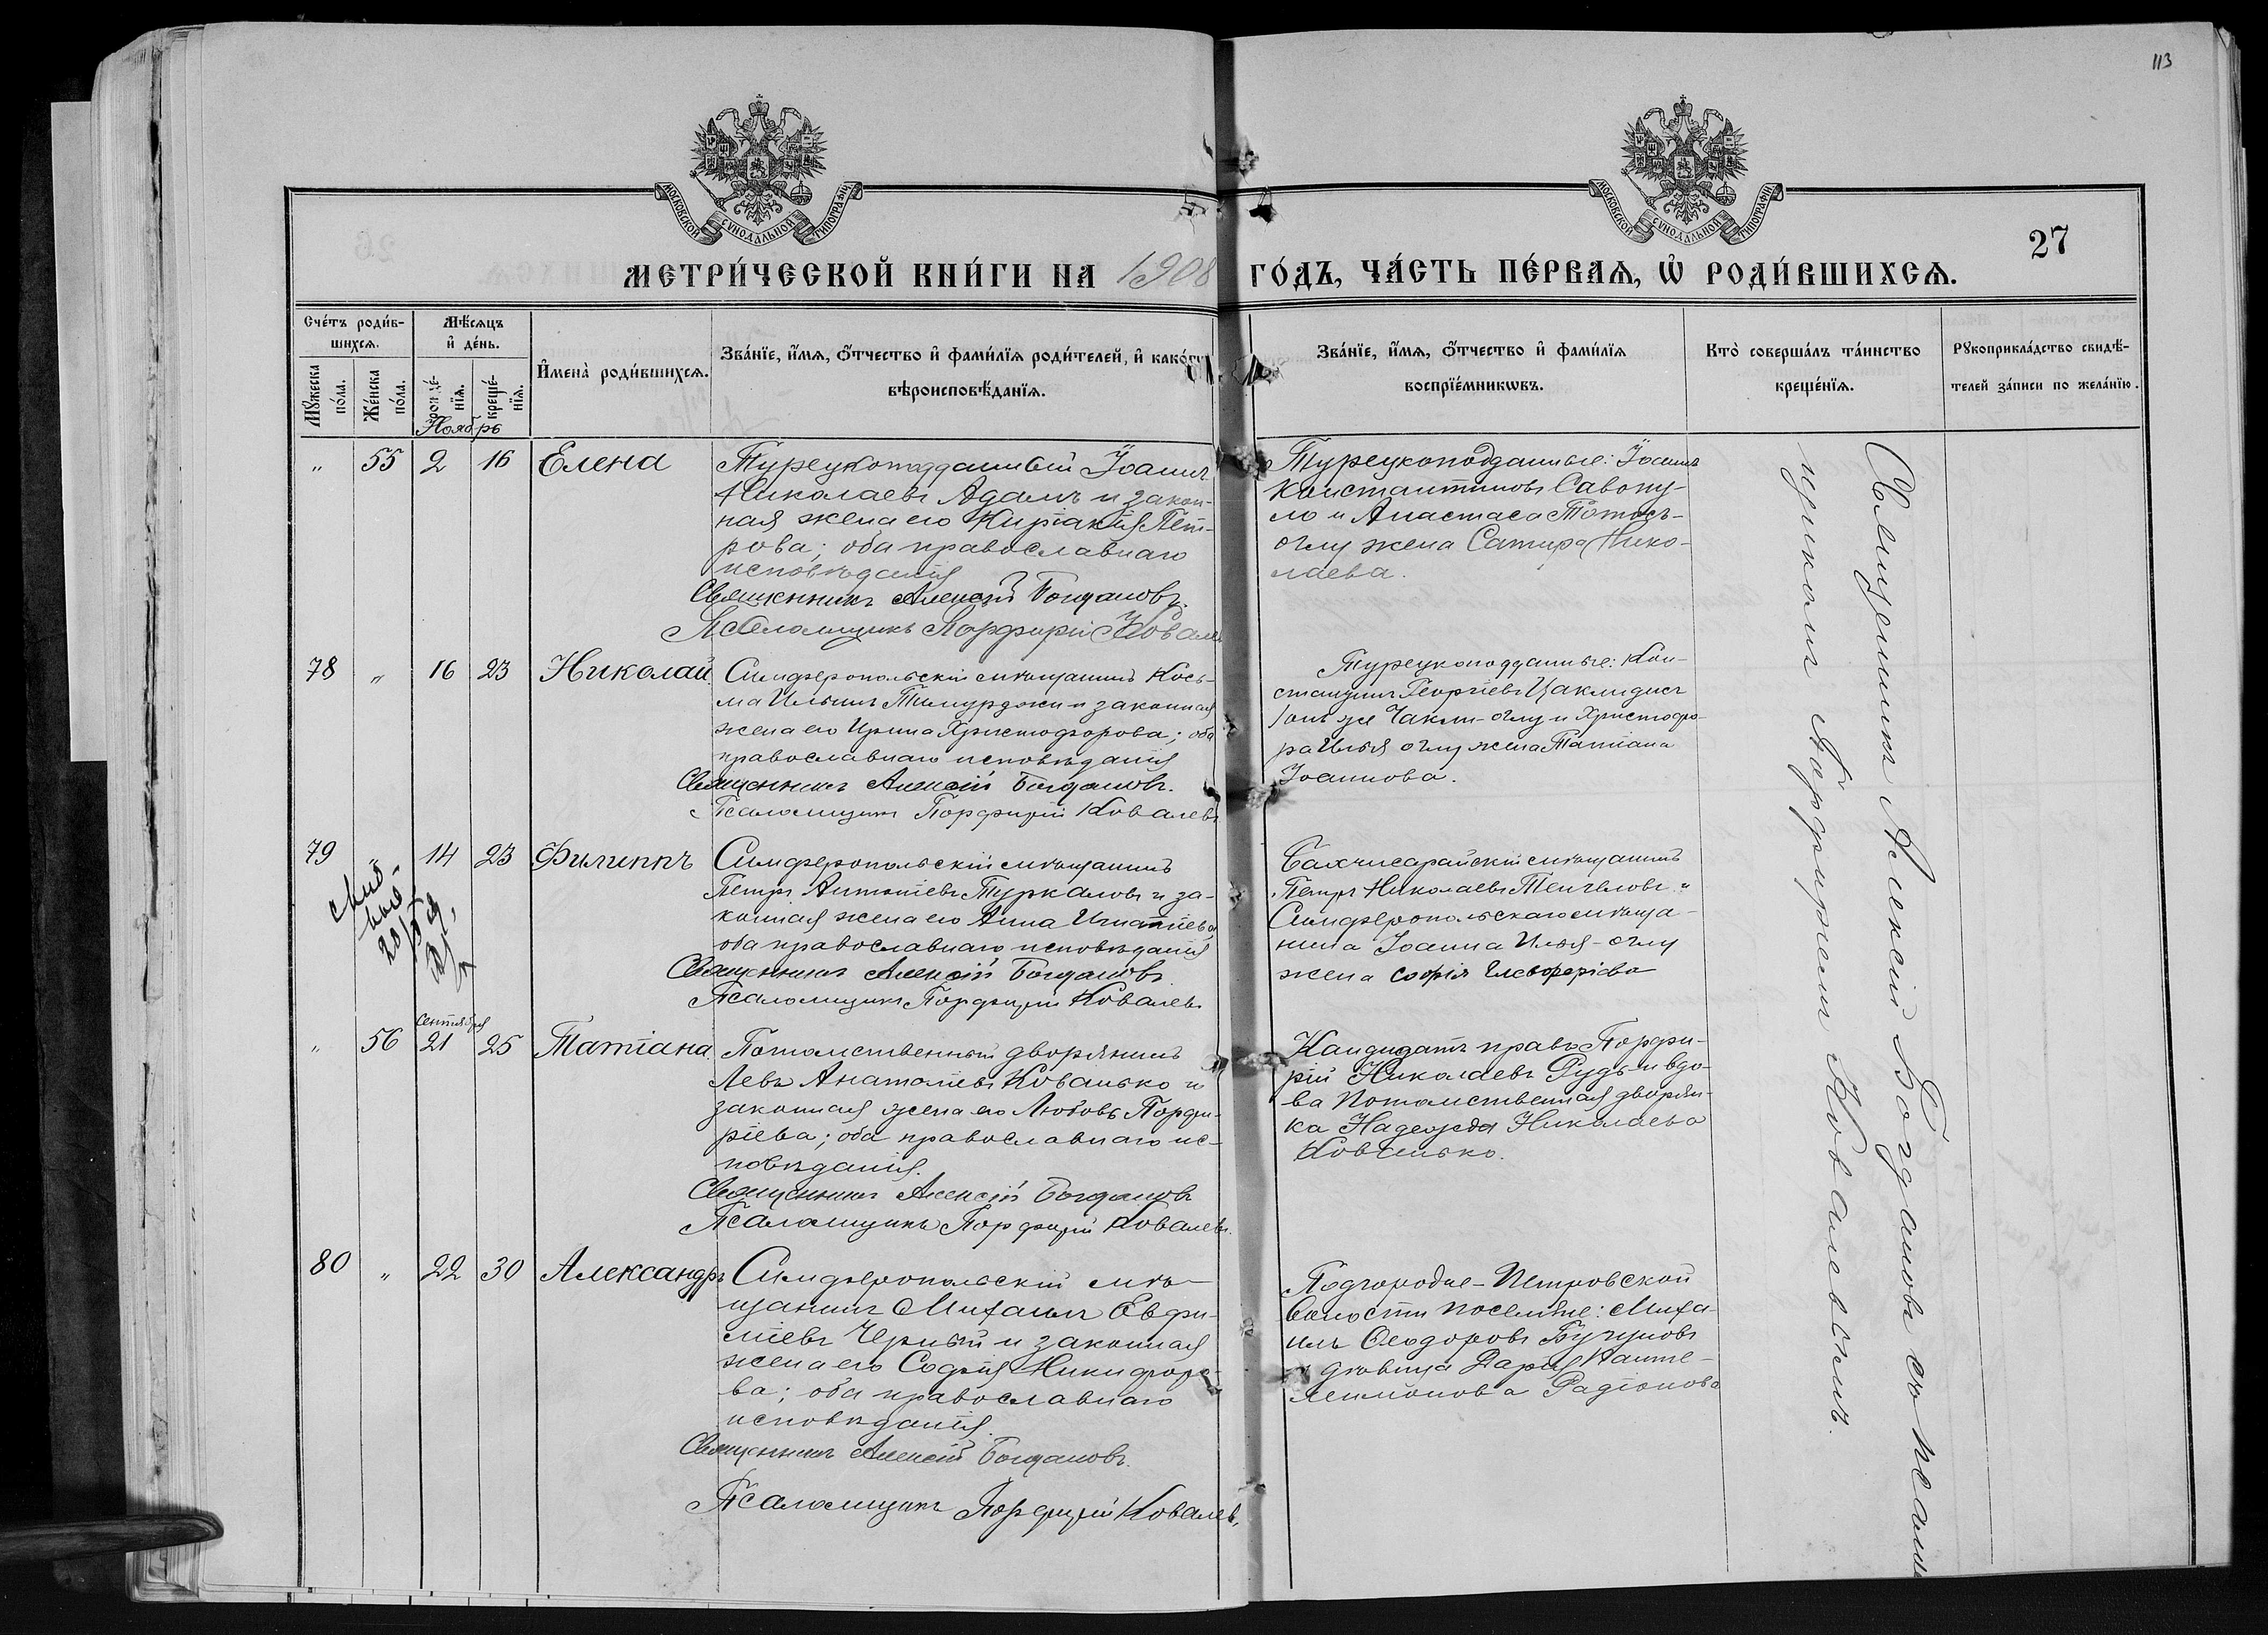 113
МОСКОВСКОЙ СУНОДАЛЬНОЙ ТИПОГРАФІИ
МОСКОВСКОЙ СУНОДАЛЬНОЙ ТИПОГРАФІИ
27
МЕТРИ́ЧЕСКОЙ КНИ́ГИ НА 1908 ГО́ДЪ, ЧА́СТЬ ПЕ́РВАЯ, Ѡ҆ РОДИ́ВШИХСѦ.
Сче́тъ роди́в-
шихсѧ.
Мꙋ́жеска по́ла.
Же́нска по́ла.
Мѣ́сѧцъ
и҆ де́нь.
рожде́-
нїѧ.
креще́-
нїѧ.
Ноябрь
И҆мена̀ роди́вшихсѧ.
Зва́нїе, и҆́мѧ, ѻ҆́тчество и҆ фами́лїѧ роди́телей, и҆ како́гѡ
вѣроисповѣ́данїѧ.
Зва́нїе, и҆́мѧ, ѻ҆́тчество и҆ фами́лїѧ
воспрїе́мникѡвъ.
Кто̀ соверша́лъ та́инство
креще́нїѧ.
Рꙋкоприкла́дство свидѣ́-
телей за́писи по жела́нїю.
" 55 2 16 Елена
Турецкоподданный Іоаннъ
Николаевъ Адамъ и закон-
ная жена его Киріакія Пет-
рова; оба православнаго
исповѣданія
Священникъ Алексій Богдановъ.
Псаломщикъ Порфирій Ковалев
Турецкоподданные: Іоаннъ
Константиновъ Савопу-
ло и Анастаса
оглу жена Сатира Нико-
лаева.
78 " 16 23 Николай
Симферопольскій мѣщанинъ Кось-
ма Ильинъ Тимурджи и законная
жена его Ирина Христофорова; оба
православнаго исповѣданія
Священникъ Алексій Богдановъ.
Псаломщикъ Порфирій Ковалевъ
Турецкоподданные: Кон-
стантинъ Георгіевъ Цаклидисъ
онъ же Чакли-оглу и Христофо-
ра Илья оглу жена Татіана
Іоаннова.
79 " 14 23 Филиппъ
Симферопольскій мѣщанинъ
Петръ Антоніевъ Туркаловъ и за-
конная жена его Анна Игнатіева
оба православнаго исповѣданія
Священникъ Алексій Богдановъ
Псаломщикъ Порфирій Ковалевъ
Бахчисарайскій мѣщанинъ
Петръ Николаевъ и
Симферопольскаго мѣща-
нина Іоанна Илья-оглу
жена Софія Елевферіева
" 56 сентября 21 25 Татіана
Потомственный дворянинъ
Левъ Анатоліевъ Кованько и
законная жена его Любовь Порфи-
ріева; оба православнаго ис-
повѣданія.
Священникъ Алексій Богдановъ
Псаломщикъ Порфирій Ковалевъ.
Кандидатъ правъ Порфи-
рій Николаевъ Рудь и вдо-
ва Потомственная дворян-
ка Надежда Николаева
Кованько.
80 " 22 30 Александръ
Симферопольскій мѣ-
щанинъ Михаилъ Евфи-
міевъ Черный и законная
жена его Софія Никифоро-
ва; оба православнаго
исповѣданія.
Священникъ Алексій Богдановъ.
Псаломщикъ Порфирій Ковалев.
Подгородне-Петровской
волости поселяне: Миха-
илъ Ѳеодоровъ
и дѣвица Дарія Панте-
леимонова Радіонова
Священникъ Алексій Богдановъ съ псалом-
щикомъ Порфиріемъ Ковалевымъ.